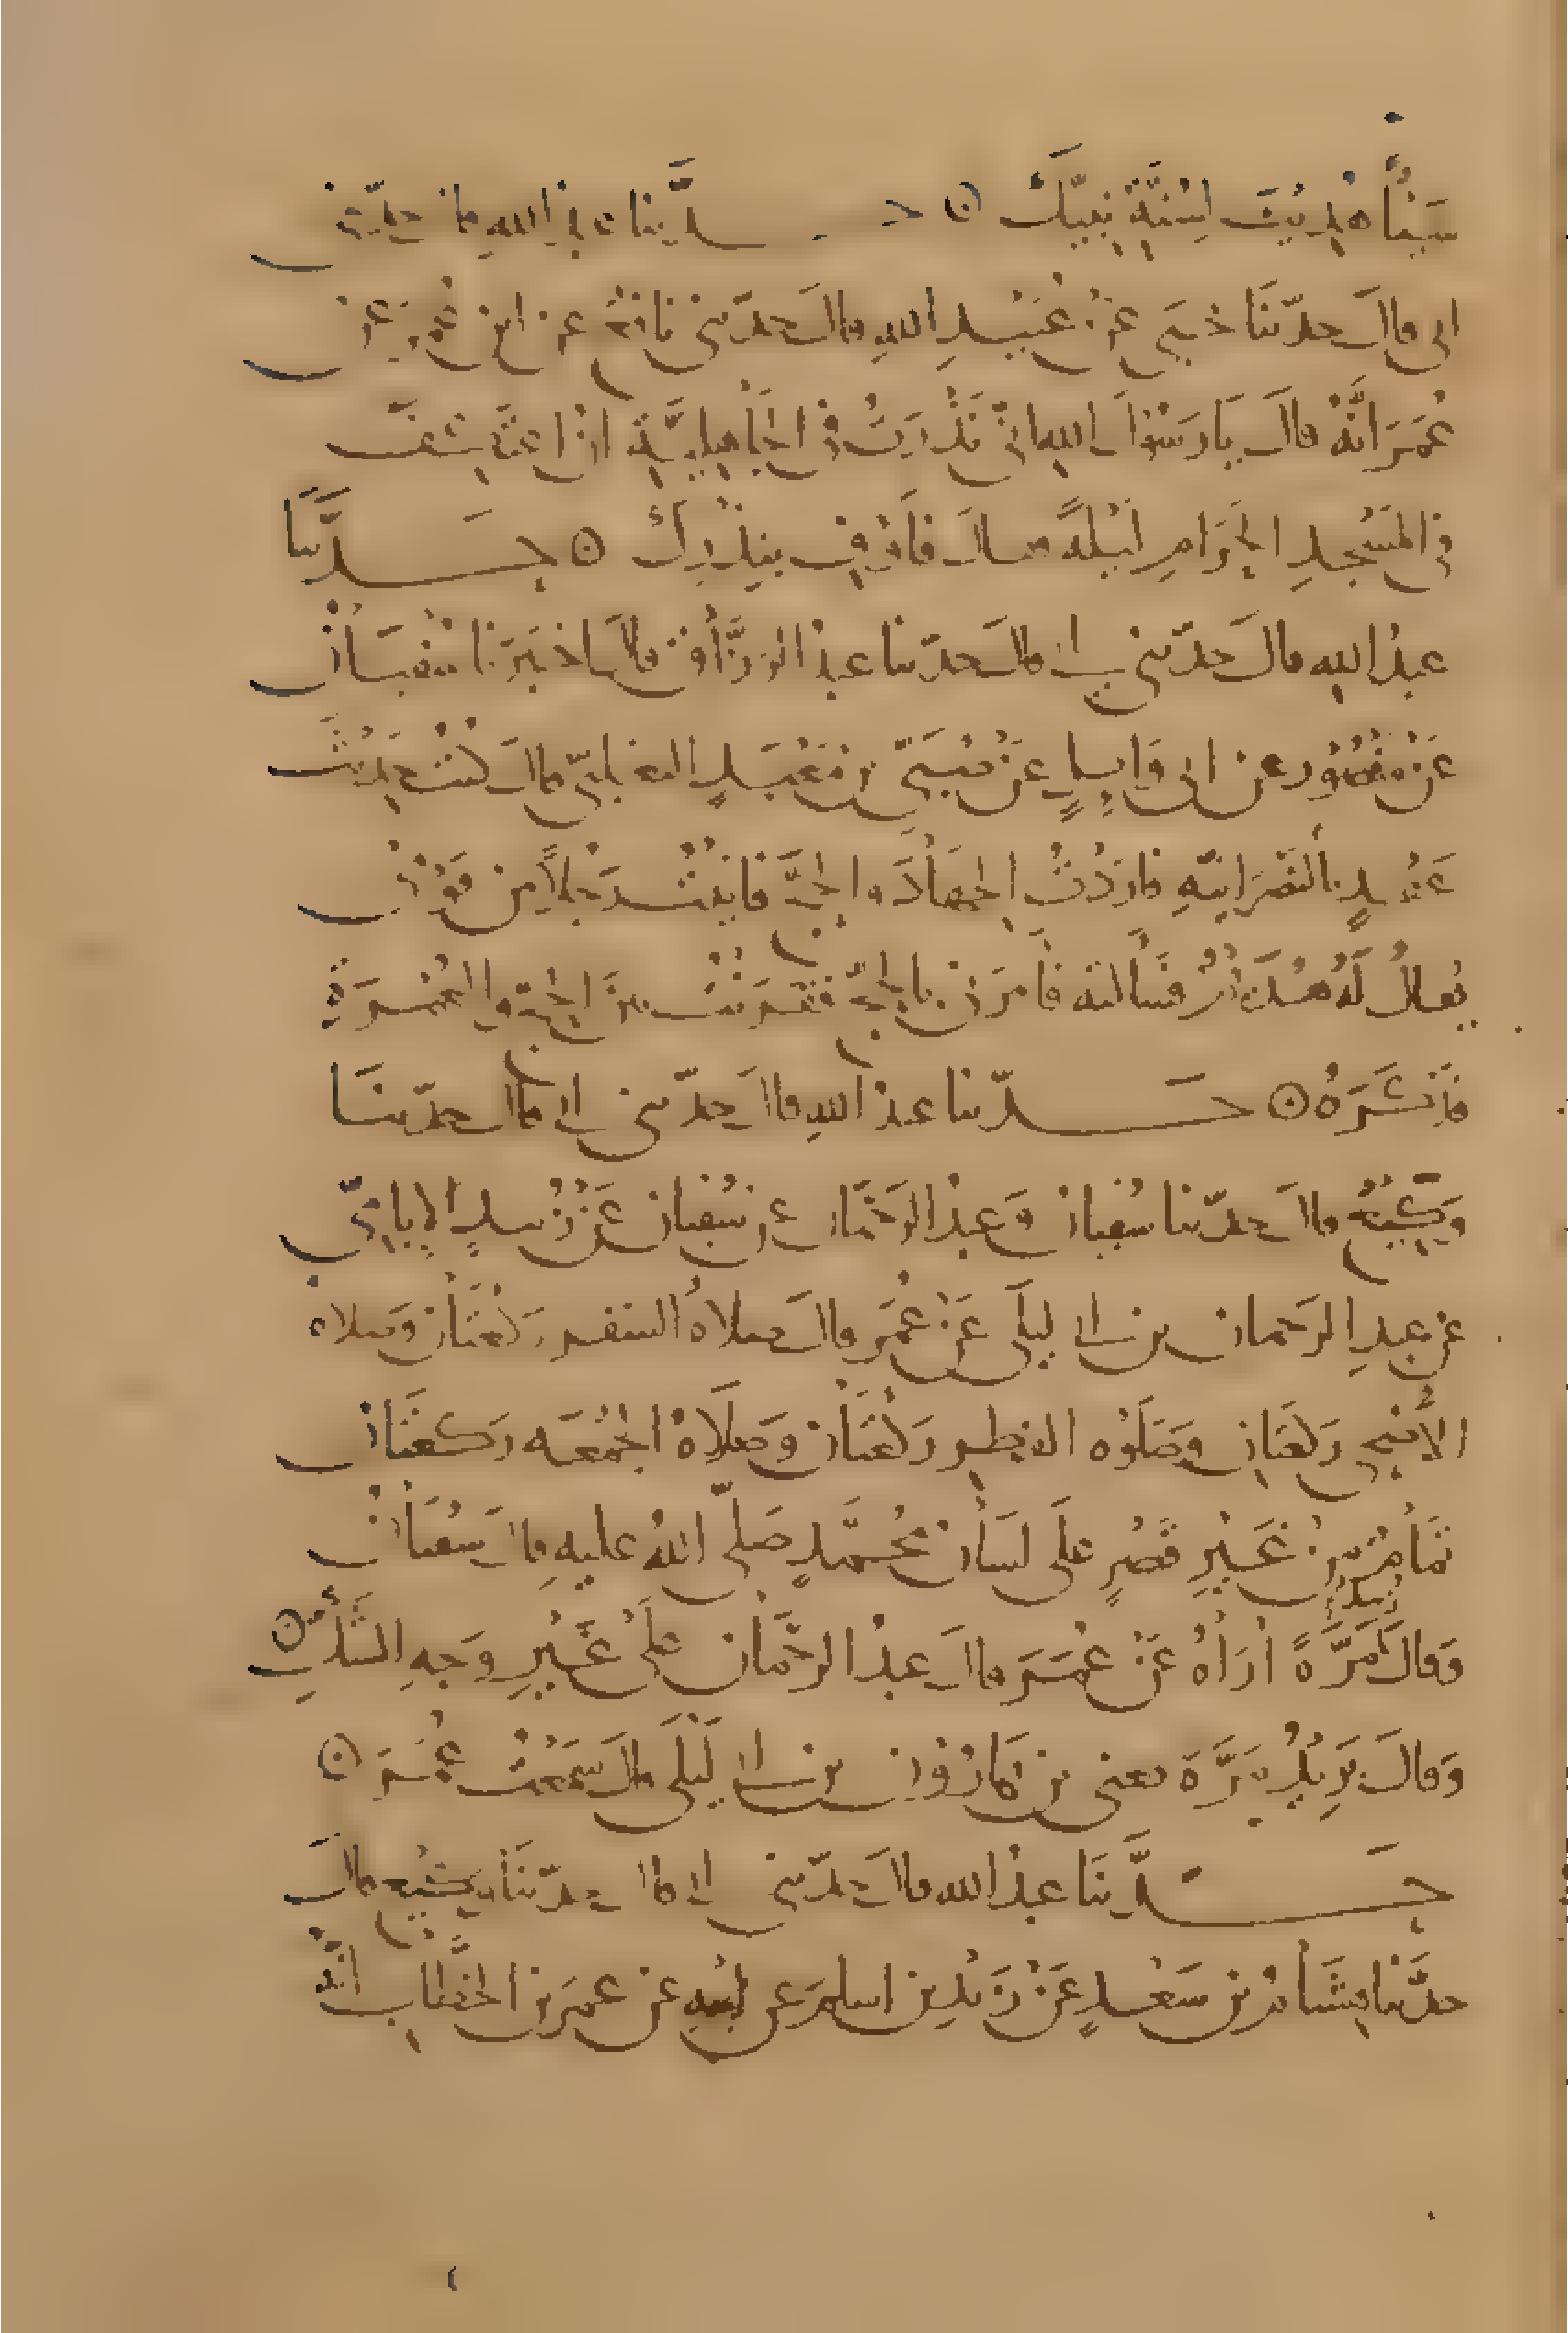 شيئا هديت لسنة نبيك ۞ حدثنا عبد الله قال حدثني
ابي قال حدثنا يحيى عن عبيد الله قال حدثني نافع عن ابن عمر عن
عمر انه قال يا رسول الله اني نذرت في الجاهلية ان اعتكف
في المسجد الحرام ليلة قال فاوف بنذرك ۞ حدثنا
عبد الله قال حدثني ابي قال حدثنا عبد الرزاق قال اخبرنا سفيان
عن منصور عن ابي وايل عن صبي بن معبد التغلبي قال كنت حديث
عهد بالنصرانية فاردت الجهاد والحج فاتيت رجلا من قومي
يقال له هديم فسالته فامرني بالحج فقرنت بين الحج والعمرة
فذكره ۞ حدثنا عبد الله قال حدثني ابي قال حدثنا
وكيع قال حدثنا سفيان وعبد الرحمان عن سفيان عن زبيد الايامي
عن عبد الرحمان بن ابي ليلى عن عمر قال صلاة السفر ركعتان وصلاة
الاضحى ركعتان وصلوه الفطر ركعتان وصلاة الجمعه ركعتان
تمام من غير قصر على لسان محمد صلى الله عليه قال سفيان
زبيد
وقال مرة اراه عن عمر قال عبد الرحمان على غير وجه الشك ۞
وقال يزيد مرة يعني بن هارون بن ابي ليلى قال سمعت عمر ۞
حدثنا عبد الله قال حدثني ابي قال حدثنا وكيع قال
حدثنا هشام بن سعد عن زيد بن اسلم عن ابيه عن عمر بن الخطاب انه